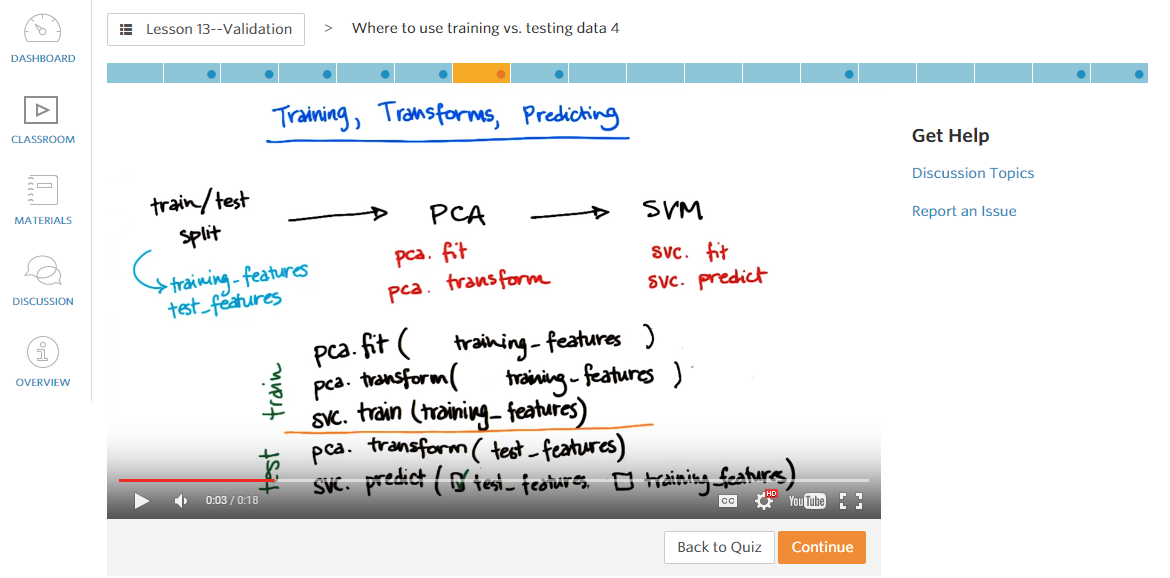 DASHBOARD
CLASSROOM
MATERIALS
DISCUSSION
OVERVIEW
Lesson 13--Validation > Where to use training vs. testing data 4
Training, Transforms, Predicting
train/test split
training_features
test_features
PCA
pca. fit
pca. transform
SVM
svc. fit
svc. predict
train
pca. fit ( training_features )
pca. transform( training_features )
svc. train (training_features)
test
pca. transform( test_features)
svc. predict ( test_features training_features)
0:03 / 0:18
CC
HD
YouTube
Back to Quiz
Continue
Get Help
Discussion Topics
Report an Issue